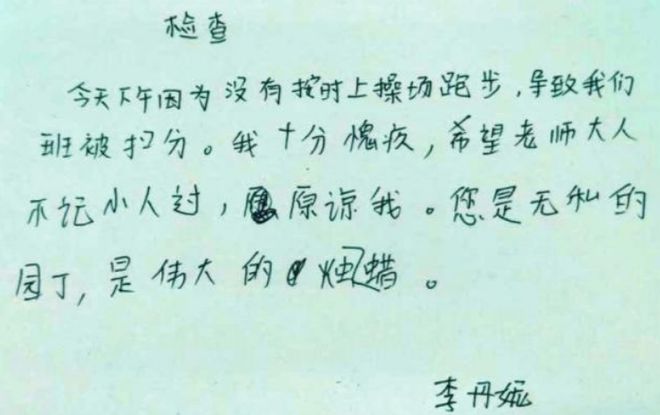 检查
今天下午因为没有按时上操场跑步,导致我们
班被扣分。我十分愧疚,希望老师大人
不记小人过,原谅我。您是无私的
园丁,是伟大的蜡烛。
李丹妮